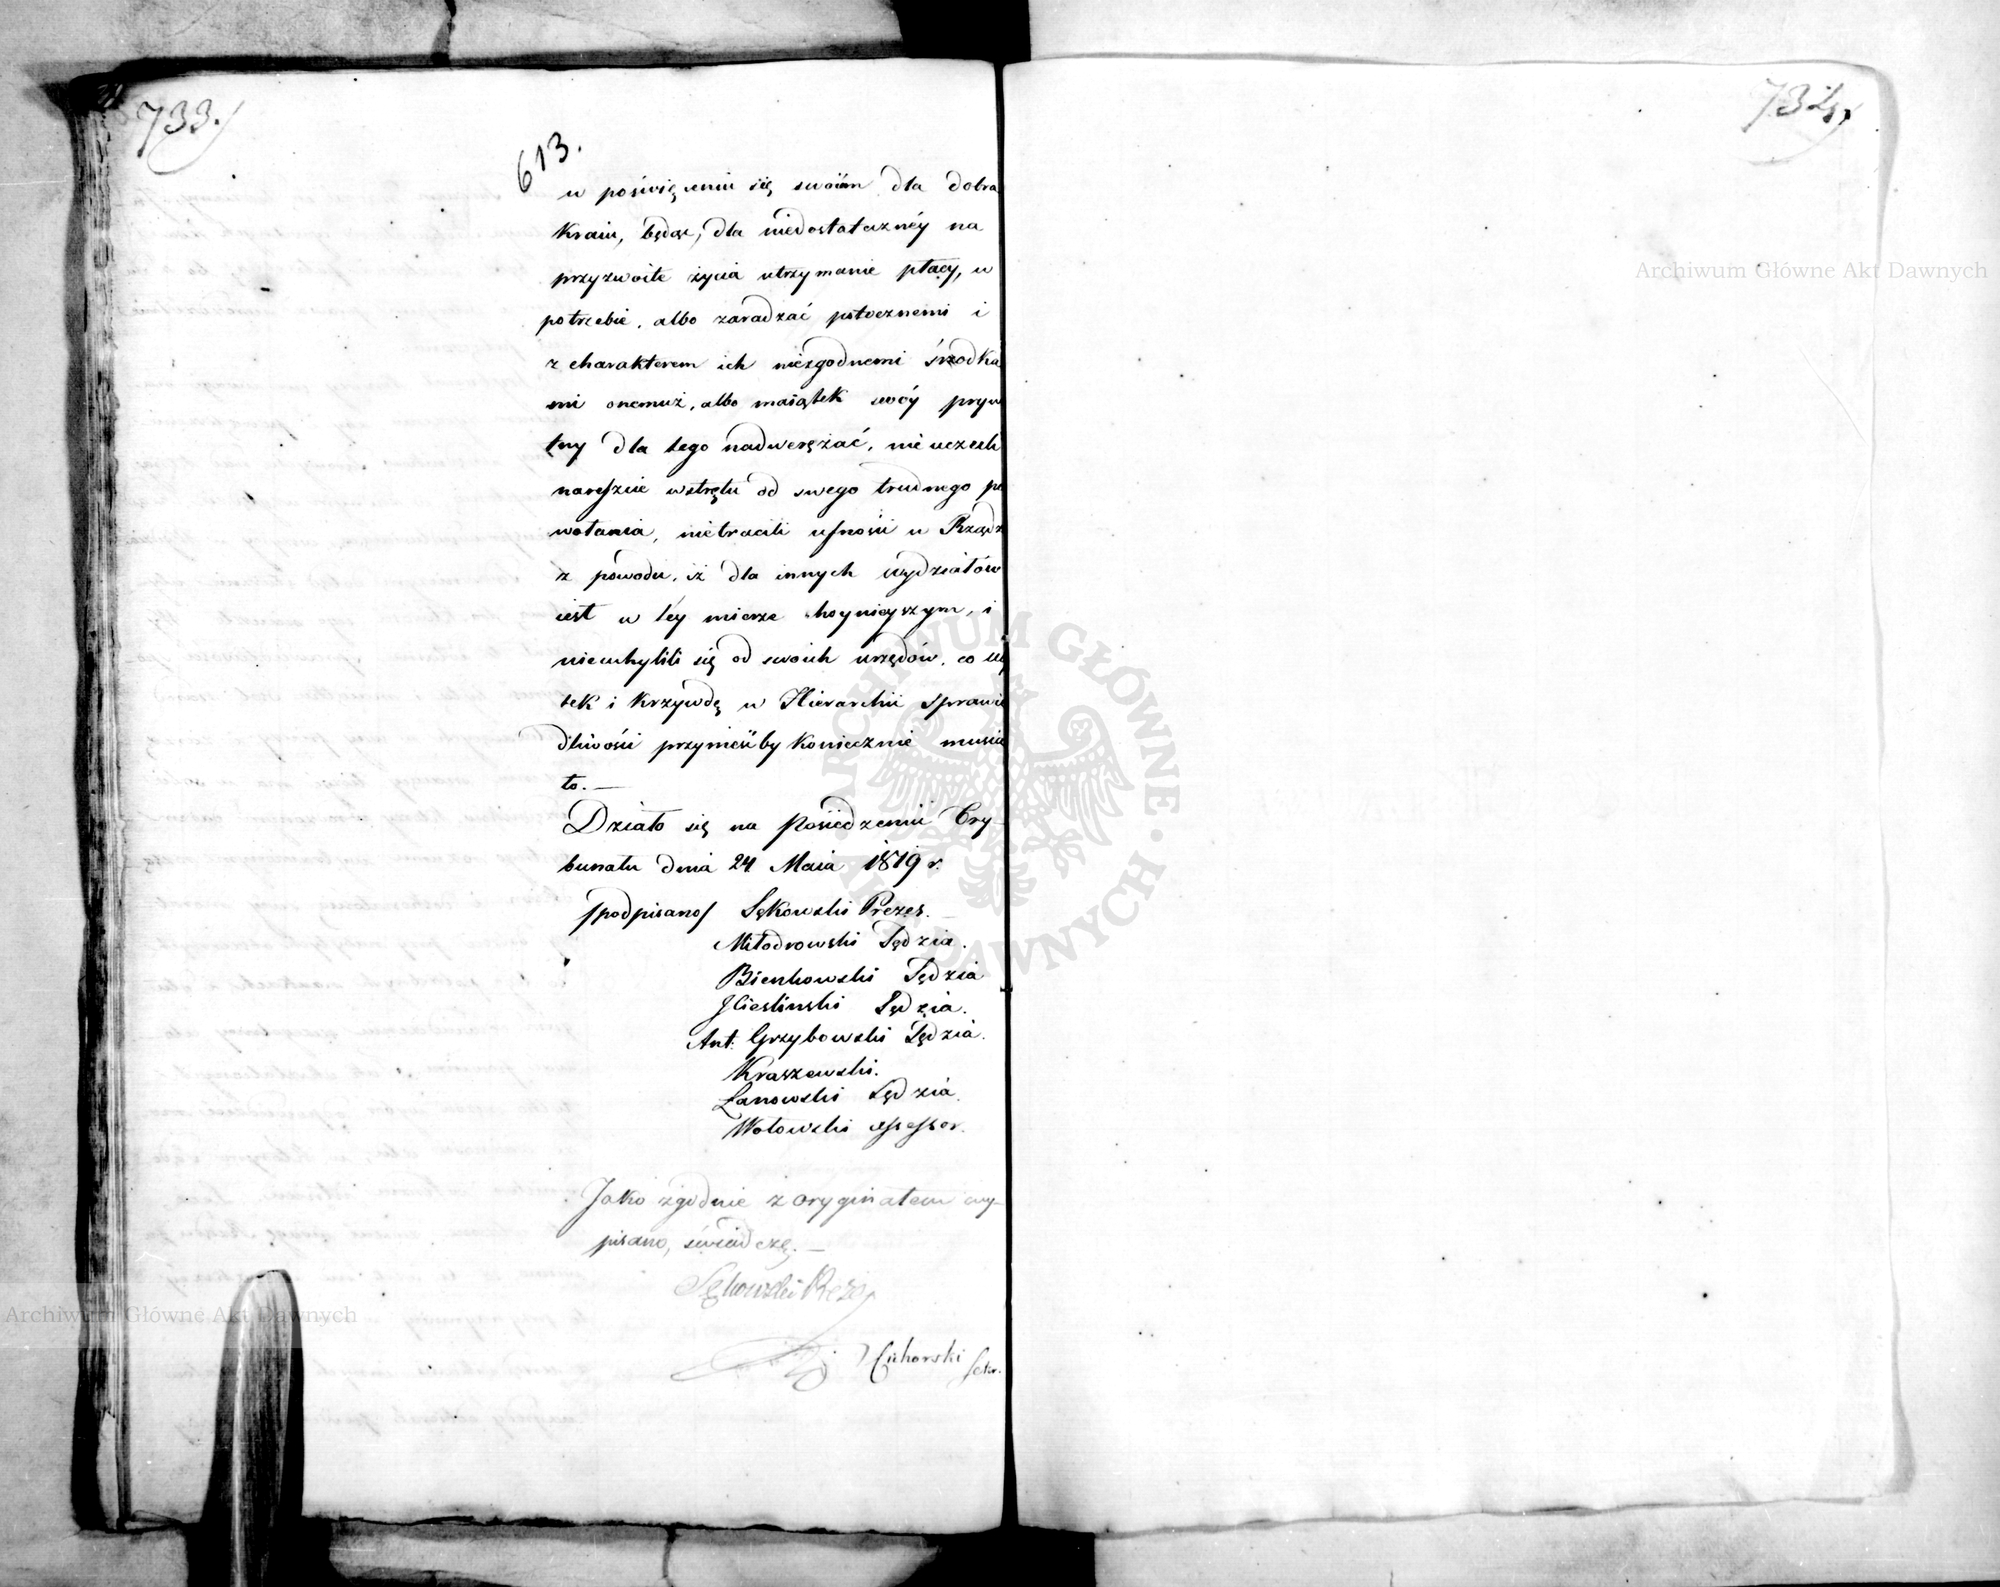 733.
613.
w poświęceniu się swoiem dla dobra
Kraiu, będąc, dla niedostatecznéy na
przyzwoite życia utrzymanie płacy, w
potrzebie, albo zaradzać pobocznemi i
z charakterem ich niezgodnemi śrzodka
mi onemuż, albo maiątek swóy pryw
tny dla tego nadwerężać, nie uczuli
nareszcie wstrętu od swego trudnego po
wołania, nietracili ufności w Rządz
z powodu, iż dla innych wydziałów
iest w téy mierze hoynieyszym, i
nieuchylili się od swoich urzędów, co
tek i Krzywdę w Hierarchii Sprawie
dliwości przynieśćby koniecznie musia
ło. —
Działo się na Posiedzeniu Try-
bunału dnia 24 Maia 1819 r.
/podpisano/ Sękowski Prezes. —
Miłodrowski Sędzia.
Bienkowski Sędzia
J Cieslinski Sędzia.
Ant: Grzybowski Sędzia.
Kraszewski.
Łanowski Sędzia.
Wołowski assessor.
Jako zgodnie z oryginałem wy-
pisano, świadczę. —
Sękowski Prezes
Cichorski Sekr.
734.
Archiwum Główne Akt Dawnych
Archiwum Główne Akt Dawnych
ARCHIWUM GŁÓWNE AKT DAWNYCH